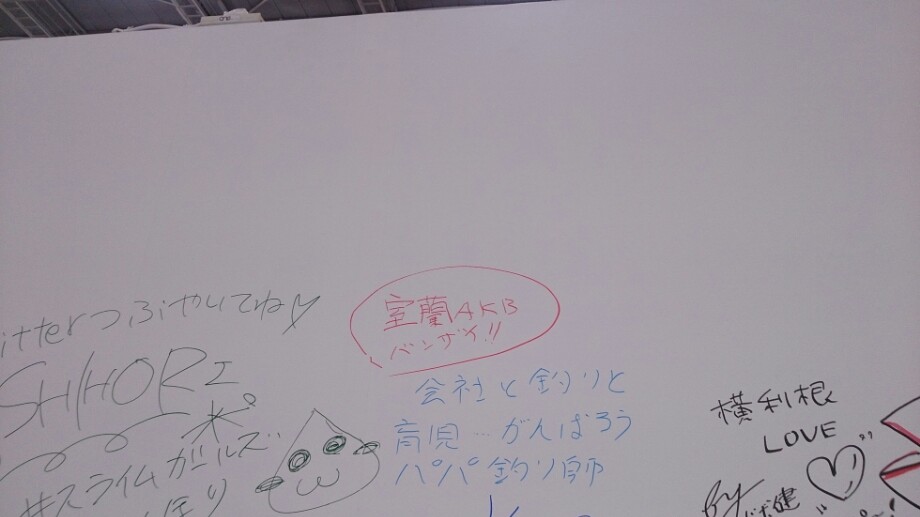 itterつぶやいてね
SHIHORI
#スライムガールズ
室蘭AKB
バンザイ!!
会社と釣りと
育児…がんばろう
パパ釣り師
横利根
LOVE
By